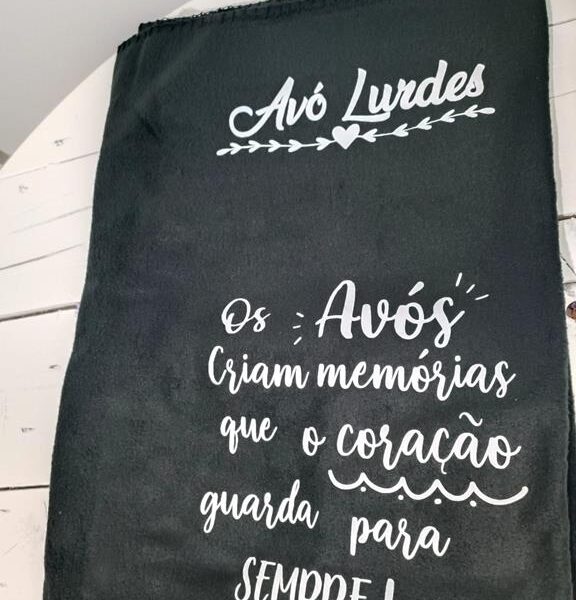 Avó Lurdes
Os Avós
Criam memórias
que o coração
guarda para
SEMPRE!